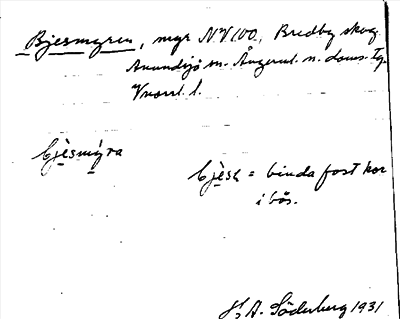 Bjesmyren, myr NV 100, Bredby skog
Anundsjö sn. Ångerml. n. doms. Tg.
Vnorrl. l.
bjèsmýra
bjèsa = binda fast kor
i bås.
H. A. Söderberg 1931